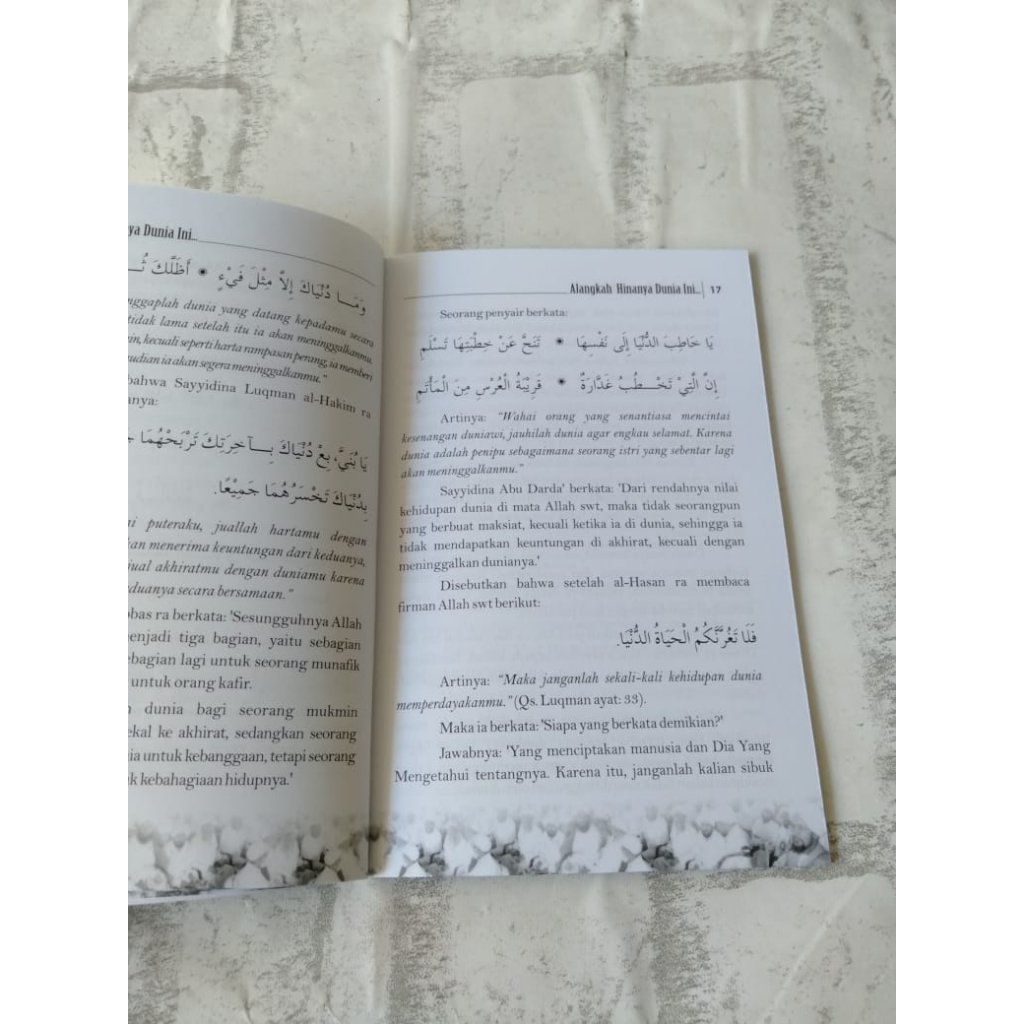 ya Dunia Ini..
وَمَا دُنْيَاكَ إِلَّا مِثْلَ فَيْءٍ * أَظَلَّكَ
nggaplah dunia yang datang kepadamu secara
tidak lama setelah itu ia akan meninggalkanmu.
in, kecuali seperti harta rampasan perang, ia memberi
udian ia akan segera meninggalkanmu."
bahwa Sayyidina Luqman al-Hakim ra
anya:
يَا بُنَيَّ، بِعْ دُنْيَاكَ بِآخِرَتِكَ تَرْبَحْهُمَا
بِدُنْيَاكَ تَخْسَرْهُمَا جَمِيْعًا.
ai puteraku, juallah hartamu dengan
an menerima keuntungan dari keduanya,
jual akhiratmu dengan duniamu karena
duanya secara bersamaan."
bbas ra berkata: 'Sesungguhnya Allah
enjadi tiga bagian, yaitu sebagian
ebagian lagi untuk seorang munafik
untuk orang kafir.
n dunia bagi seorang mukmin
ekal ke akhirat, sedangkan seorang
ia untuk kebanggaan, tetapi seorang
k kebahagiaan hidupnya.'
Alangkah Hinanya Dunia Ini.. 17
Seorang penyair berkata:
يَا خَاطِبَ الدُّنْيَا إِلَى نَفْسِهَا * تَنَحَّ عَنْ خِطْبَتِهَا تَسْلَمِ
إِنَّ الَّتِيْ تَخْطُبُ غَدَّارَةٌ * قَرِيْبَةُ الْعُرْسِ مِنَ الْمَأْتَمِ
Artinya: "Wahai orang yang senantiasa mencintai
kesenangan duniawi, jauhilah dunia agar engkau selamat. Karena
dunia adalah penipu sebagaimana seorang istri yang sebentar lagi
akan meninggalkanmu."
Sayyidina Abu Darda' berkata: 'Dari rendahnya nilai
kehidupan dunia di mata Allah swt, maka tidak seorangpun
yang berbuat maksiat, kecuali ketika ia di dunia, sehingga ia
tidak mendapatkan keuntungan di akhirat, kecuali dengan
meninggalkan dunianya.'
Disebutkan bahwa setelah al-Hasan ra membaca
firman Allah swt berikut:
فَلَا تَغُرَّنَّكُمُ الْحَيَاةُ الدُّنْيَا.
Artinya: "Maka janganlah sekali-kali kehidupan dunia
memperdayakanmu." (Qs. Luqman ayat: 33).
Maka ia berkata: 'Siapa yang berkata demikian?'
Jawabnya: 'Yang menciptakan manusia dan Dia Yang
Mengetahui tentangnya. Karena itu, janganlah kalian sibuk